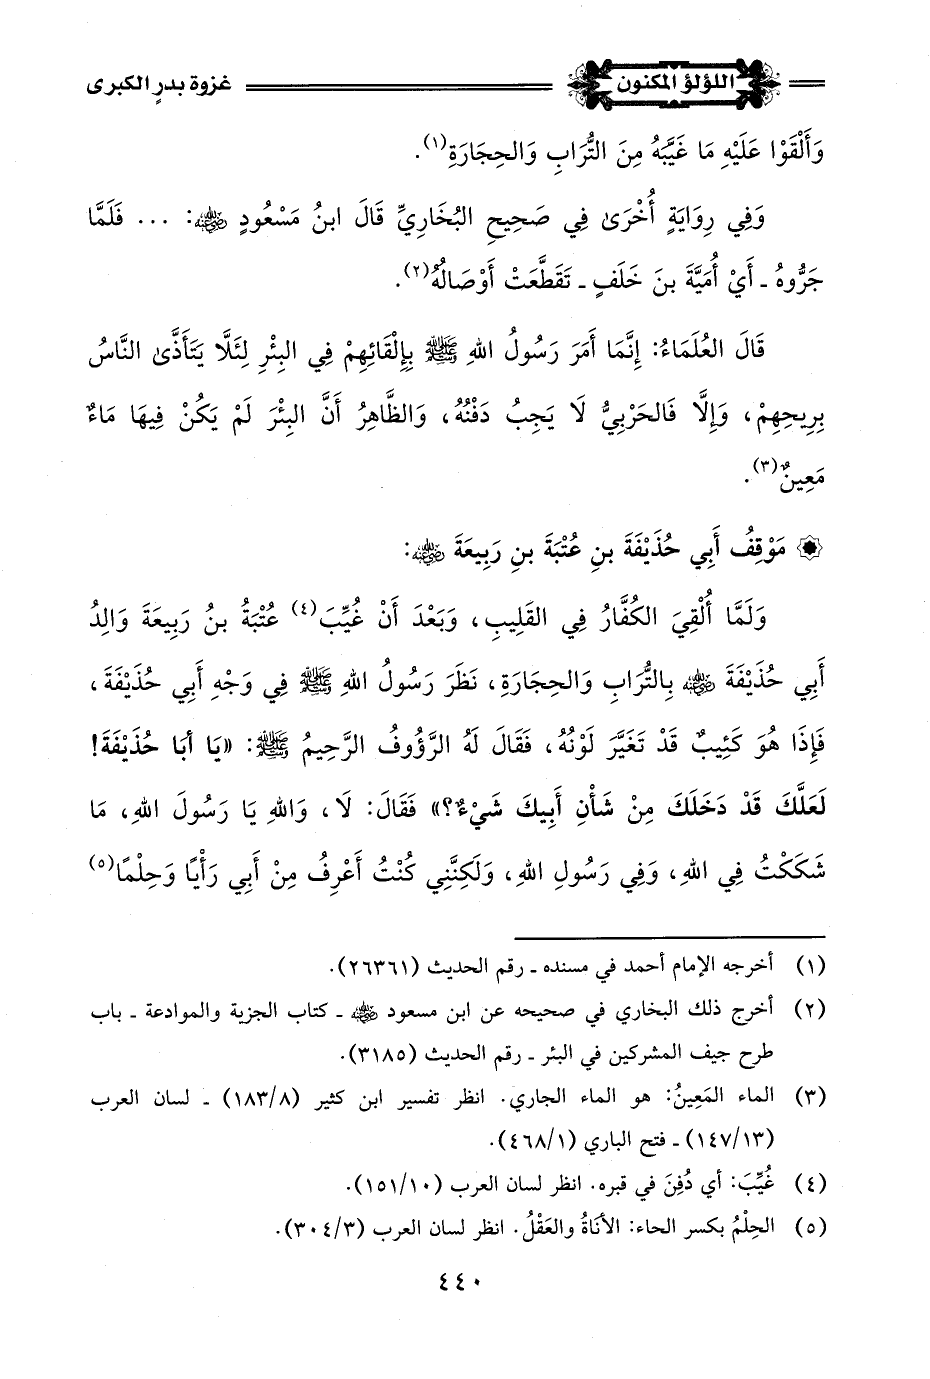 اللؤلؤ المكنون
غزوة بدرٍ الكبرى
وَأَلْقَوْا عَلَيْهِ مَا غَيَّبَهُ مِنَ التُّرَابِ وَالحِجَارَةِ(١).
وَفِي رِوَايَةٍ أُخْرَىٰ فِي صَحِيحِ البُخَارِيِّ قَالَ ابنُ مَسْعُودٍ رضي الله عنه: ... فَلَمَّا
جَرُّوهُ ـ أَيْ أُمَيَّةَ بنَ خَلَفٍ ـ تَقَطَّعَتْ أَوْصَالُهُ(٢).
قَالَ العُلَمَاءُ: إِنَّمَا أَمَرَ رَسُولُ اللهِ ﷺ بِإِلْقَائِهِمْ فِي البِئْرِ لِئَلَّا يَتَأَذَّىٰ النَّاسُ
بِرِيحِهِمْ، وَإِلَّا فَالحَرْبِيُّ لَا يَجِبُ دَفْنُهُ، وَالظَّاهِرُ أَنَّ البِئْرَ لَمْ يَكُنْ فِيهَا مَاءٌ
مَعِينٌ(٣).
مَوْقِفُ أَبِي حُذَيْفَةَ بنِ عُتْبَةَ بنِ رَبِيعَةَ رضي الله عنه:
وَلَمَّا أُلْقِيَ الكُفَّارُ فِي القَلِيبِ، وَبَعْدَ أَنْ غُيِّبَ(٤) عُتْبَةُ بنُ رَبِيعَةَ وَالِدُ
أَبِي حُذَيْفَةَ رضي الله عنه بِالتُّرَابِ وَالحِجَارَةِ، نَظَرَ رَسُولُ اللهِ ﷺ فِي وَجْهِ أَبِي حُذَيْفَةَ،
فَإِذَا هُوَ كَئِيبٌ قَدْ تَغَيَّرَ لَوْنُهُ، فَقَالَ لَهُ الرَّؤُوفُ الرَّحِيمُ ﷺ: «يَا أَبَا حُذَيْفَةَ!
لَعَلَّكَ قَدْ دَخَلَكَ مِنْ شَأْنِ أَبِيكَ شَيْءٌ؟» فَقَالَ: لَا، وَاللهِ يَا رَسُولَ اللهِ، مَا
شَكَكْتُ فِي اللهِ، وَفِي رَسُولِ اللهِ، وَلَكِنَّنِي كُنْتُ أَعْرِفُ مِنْ أَبِي رَأْيًا وَحِلْمًا(٥)
(١) أخرجه الإمام أحمد في مسنده ـ رقم الحديث (٢٦٣٦١).
(٢) أخرج ذلك البخاري في صحيحه عن ابن مسعود رضي الله عنه ـ كتاب الجزية والموادعة ـ باب
طرح جيف المشركين في البئر ـ رقم الحديث (٣١٨٥).
(٣) الماء المَعِينُ: هو الماء الجاري. انظر تفسير ابن كثير (١٨٣/٨) ـ لسان العرب
(١٤٧/١٣) ـ فتح الباري (٤٦٨/١).
(٤) غُيِّبَ: أي دُفِنَ في قبره. انظر لسان العرب (١٥١/١٠).
(٥) الحِلْمُ بكسر الحاء: الأنَاةُ والعَقْلُ. انظر لسان العرب (٣٠٤/٣).
٤٤٠